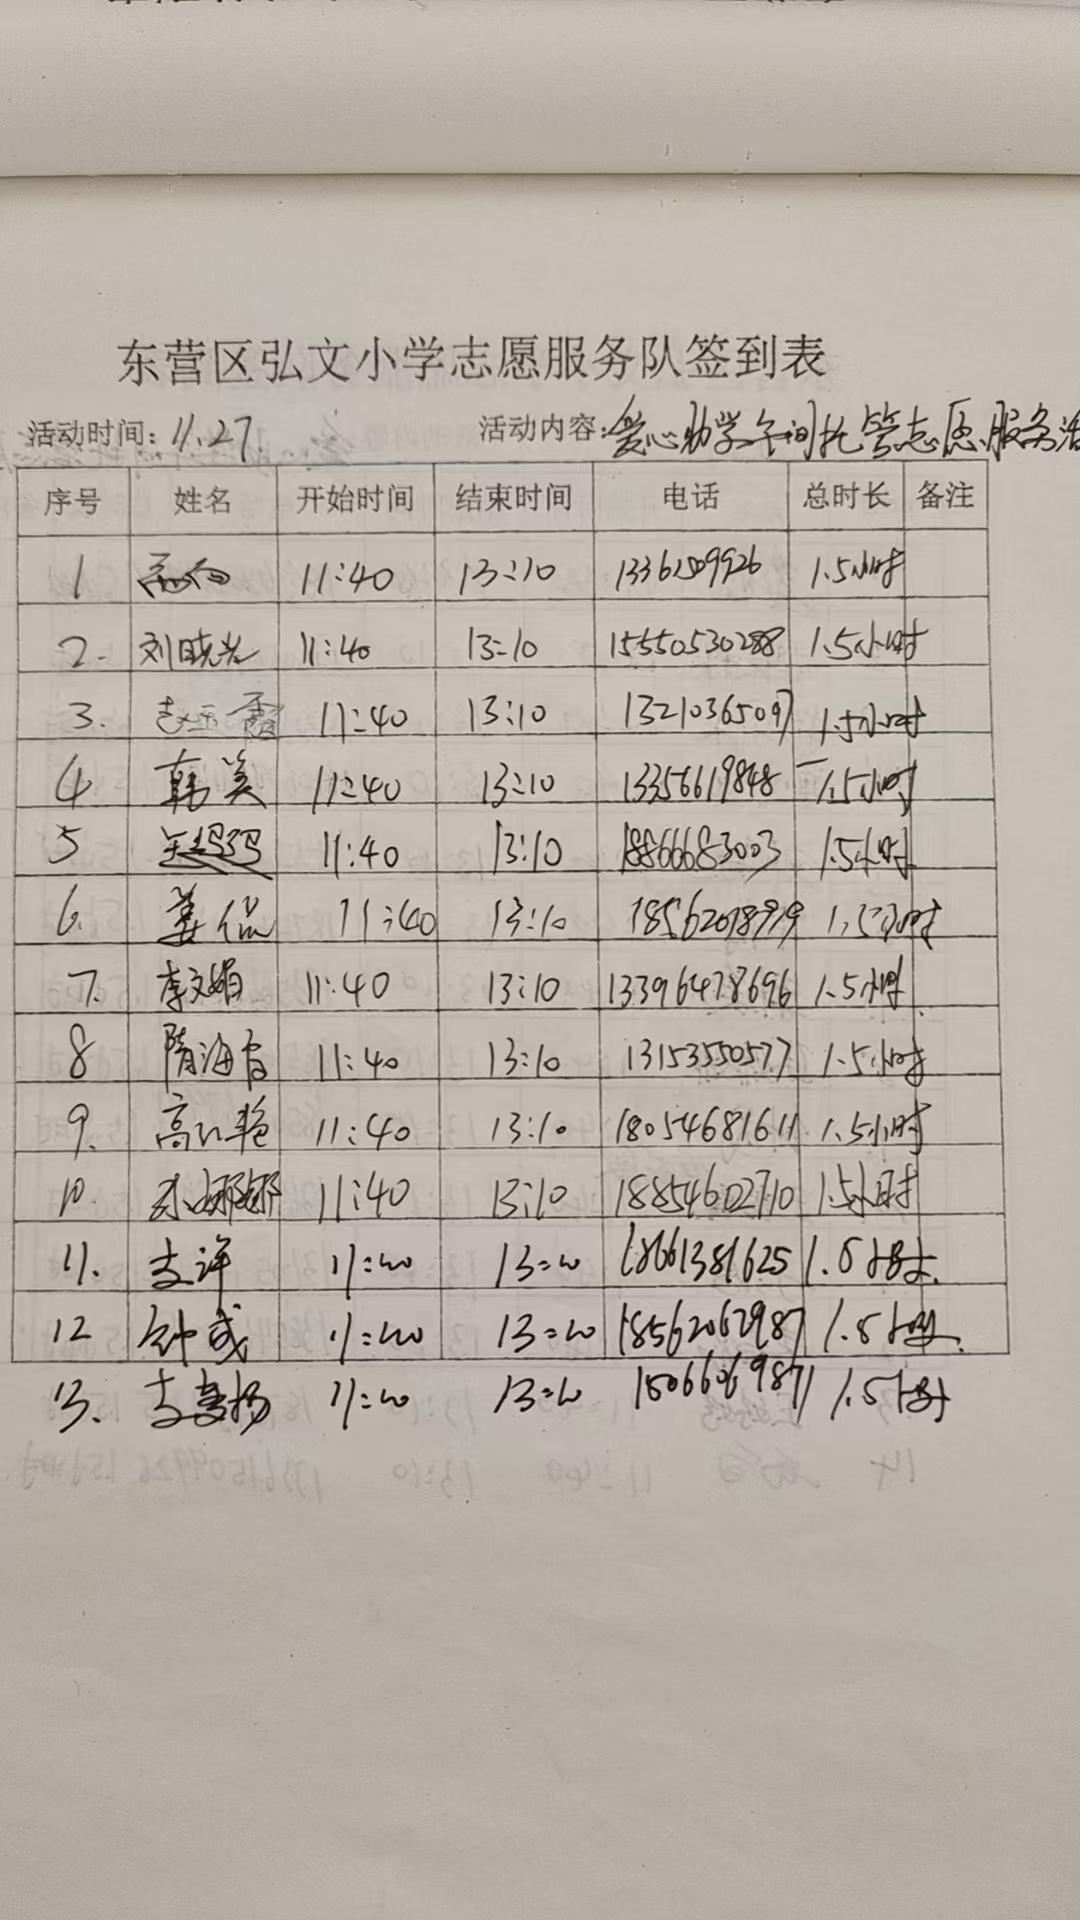 东营区弘文小学志愿服务队签到表
活动时间: 11.27. 活动内容: 爱心助学午间托管志愿服务活
序号 姓名 开始时间 结束时间 电话 总时长 备注
1 11:40 13:10 13361509926 1.5小时
2. 刘晓光 11:40 13:10 15550530288 1.5小时
3. 赵玉霞 11:40 13:10 13210365097 1.5小时
4. 韩美 11:40 13:10 13356619848 1.5小时
5 11:40 13:10 18866683003 1.5小时
6. 姜侃 11:40 13:10 1.5小时
7. 李文娟 11:40 13:10 13396478696 1.5小时
8 隋海 11:40 13:10 13153550577 1.5小时
9. 高红艳 11:40 13:10 18054681611 1.5小时
10. 娜娜 11:40 13:10 18854602710 1.5小时
11. 支洋 11:40 13:10 18661381625 1.5小时
12 钟 11:40 13:10 18562062987 1.5小时
13. 11:40 13:10 15066069871 1.5小时